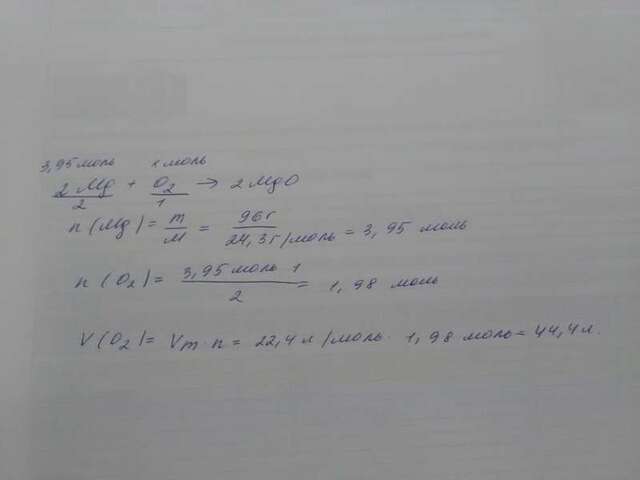 3,95 моль x моль
2 Mg + O2 → 2 MgO
2 1
n (Mg) = m/M = 96 г / 24,3 г/моль = 3,95 моль
n (O2) = 3,95 моль · 1 / 2 = 1,98 моль
V (O2) = Vm · n = 22,4 л/моль · 1,98 моль = 44,4 л.